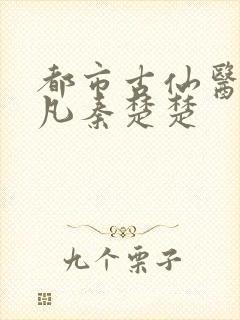 都市古仙醫
凡秦楚楚
九个栗子